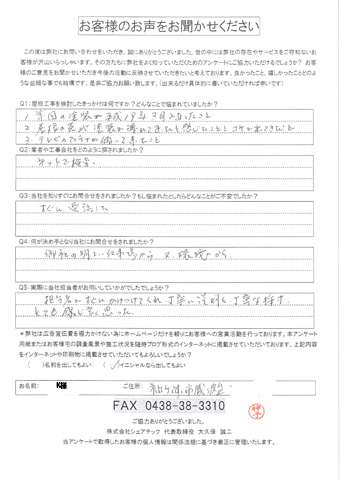 お客様のお声をお聞かせください
この度は弊社にお問い合わせをいただき、誠にありがとうございました。世の中には弊社の存在やサービスをご存知ないお
客様が沢山いらっしゃいます。その方たちに弊社をよく知っていただくためのアンケートにご協力いただけるでしょうか？お
客様のご意見をお聞かせいただき今後の活動に反映させていただきたいと考えております。良かったこと、嬉しかったことどのよ
うな些細な事でも結構です。是非ご協力お願い致します。（出来るだけ具体的に書いていただければ幸いです）
Q1:屋根工事を検討したきっかけは何ですか？どんなことで悩まれていましたか？
1 前回の塗装が平成19年3月であったこと
2 屋根の 塗装が薄れて来たと感じたこととコケが こと
3 テレビのアンテナが傾いて来たこと
Q2:業者や工事会社をどのように探されましたか？
ネットで検索。
Q3:当社を知りすぐにお問合せをされましたか？もし悩まれたとしたらどんなことがご不安でしたか？
すぐに 電話した
Q4:何が決め手となり当社にお問合せをされましたか？
御社の明るい から
Q5:実際に当社担当者がお伺いしていかがでしたでしょうか？
担当者がすぐにかけつけてくれ、丁寧に説明し、丁寧な
とても感じ良く思った。
＊弊社は広告宣伝費を極力かけない為にホームページだけを頼りにお客様への営業活動を行っております。本アンケート
用紙またはお客様宅の調査風景や施工状況を随時ブログ形式のインターネットに掲載させていただいております。上記内容
をインターネットや印刷物に掲載させていただいてもよろしいでしょうか？
（ ）名前を出してもよい （／）イニシャルなら出してもよい
お名前: K様 ご住所: 袖ケ浦市蔵波台
FAX 0438-38-3310
ご協力ありがとうございました。
株式会社シェアテック 代表取締役 大久保 誠二
当アンケートで取得したお客様の個人情報は関係法規に基づき厳正に管理いたします。